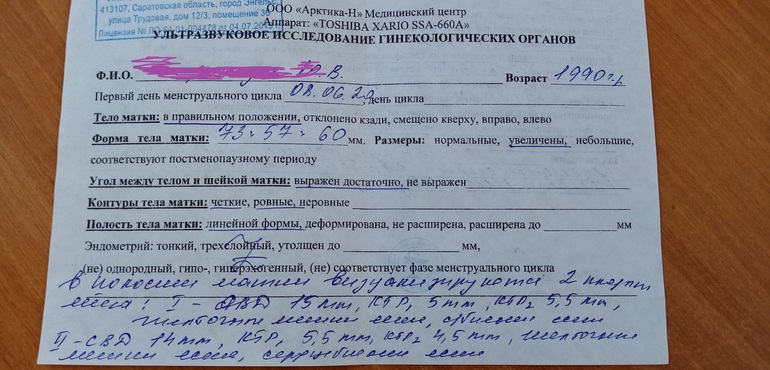 413107, Саратовская область, город Энгельс,
улица Трудовая, дом 12/3, помещение 36
Лицензия № ЛО-64-01-004478 от 04.07.2019
ООО «Арктика-Н» Медицинский центр
Аппарат: «TOSHIBA XARIO SSA-660A»
УЛЬТРАЗВУКОВОЕ ИССЛЕДОВАНИЕ ГИНЕКОЛОГИЧЕСКИХ ОРГАНОВ
Ф.И.О. В. Возраст 1990 г.р.
Первый день менструального цикла 08.06.20, день цикла
Тело матки: в правильном положении, отклонено кзади, смещено кверху, вправо, влево
Форма тела матки: 73 × 57 × 60 мм. Размеры: нормальные, увеличены, небольшие,
соответствуют постменопаузному периоду
Угол между телом и шейкой матки: выражен достаточно, не выражен
Контуры тела матки: четкие, ровные, неровные
Полость тела матки: линейной формы, деформирована, не расширена, расширена до мм
Эндометрий: тонкий, трехслойный, утолщен до мм,
(не) однородный, гипо-, гиперэхогенный, (не) соответствует фазе менструального цикла
В полости матки визуализируются 2 плодных
яйца: I - СВД 15 mm, КТР 5 mm, КТР2 5,5 mm,
II - СВД 14 mm, КТР, 5,5 mm, КТР2 4,5 mm, желточные
мешки сердцебиения